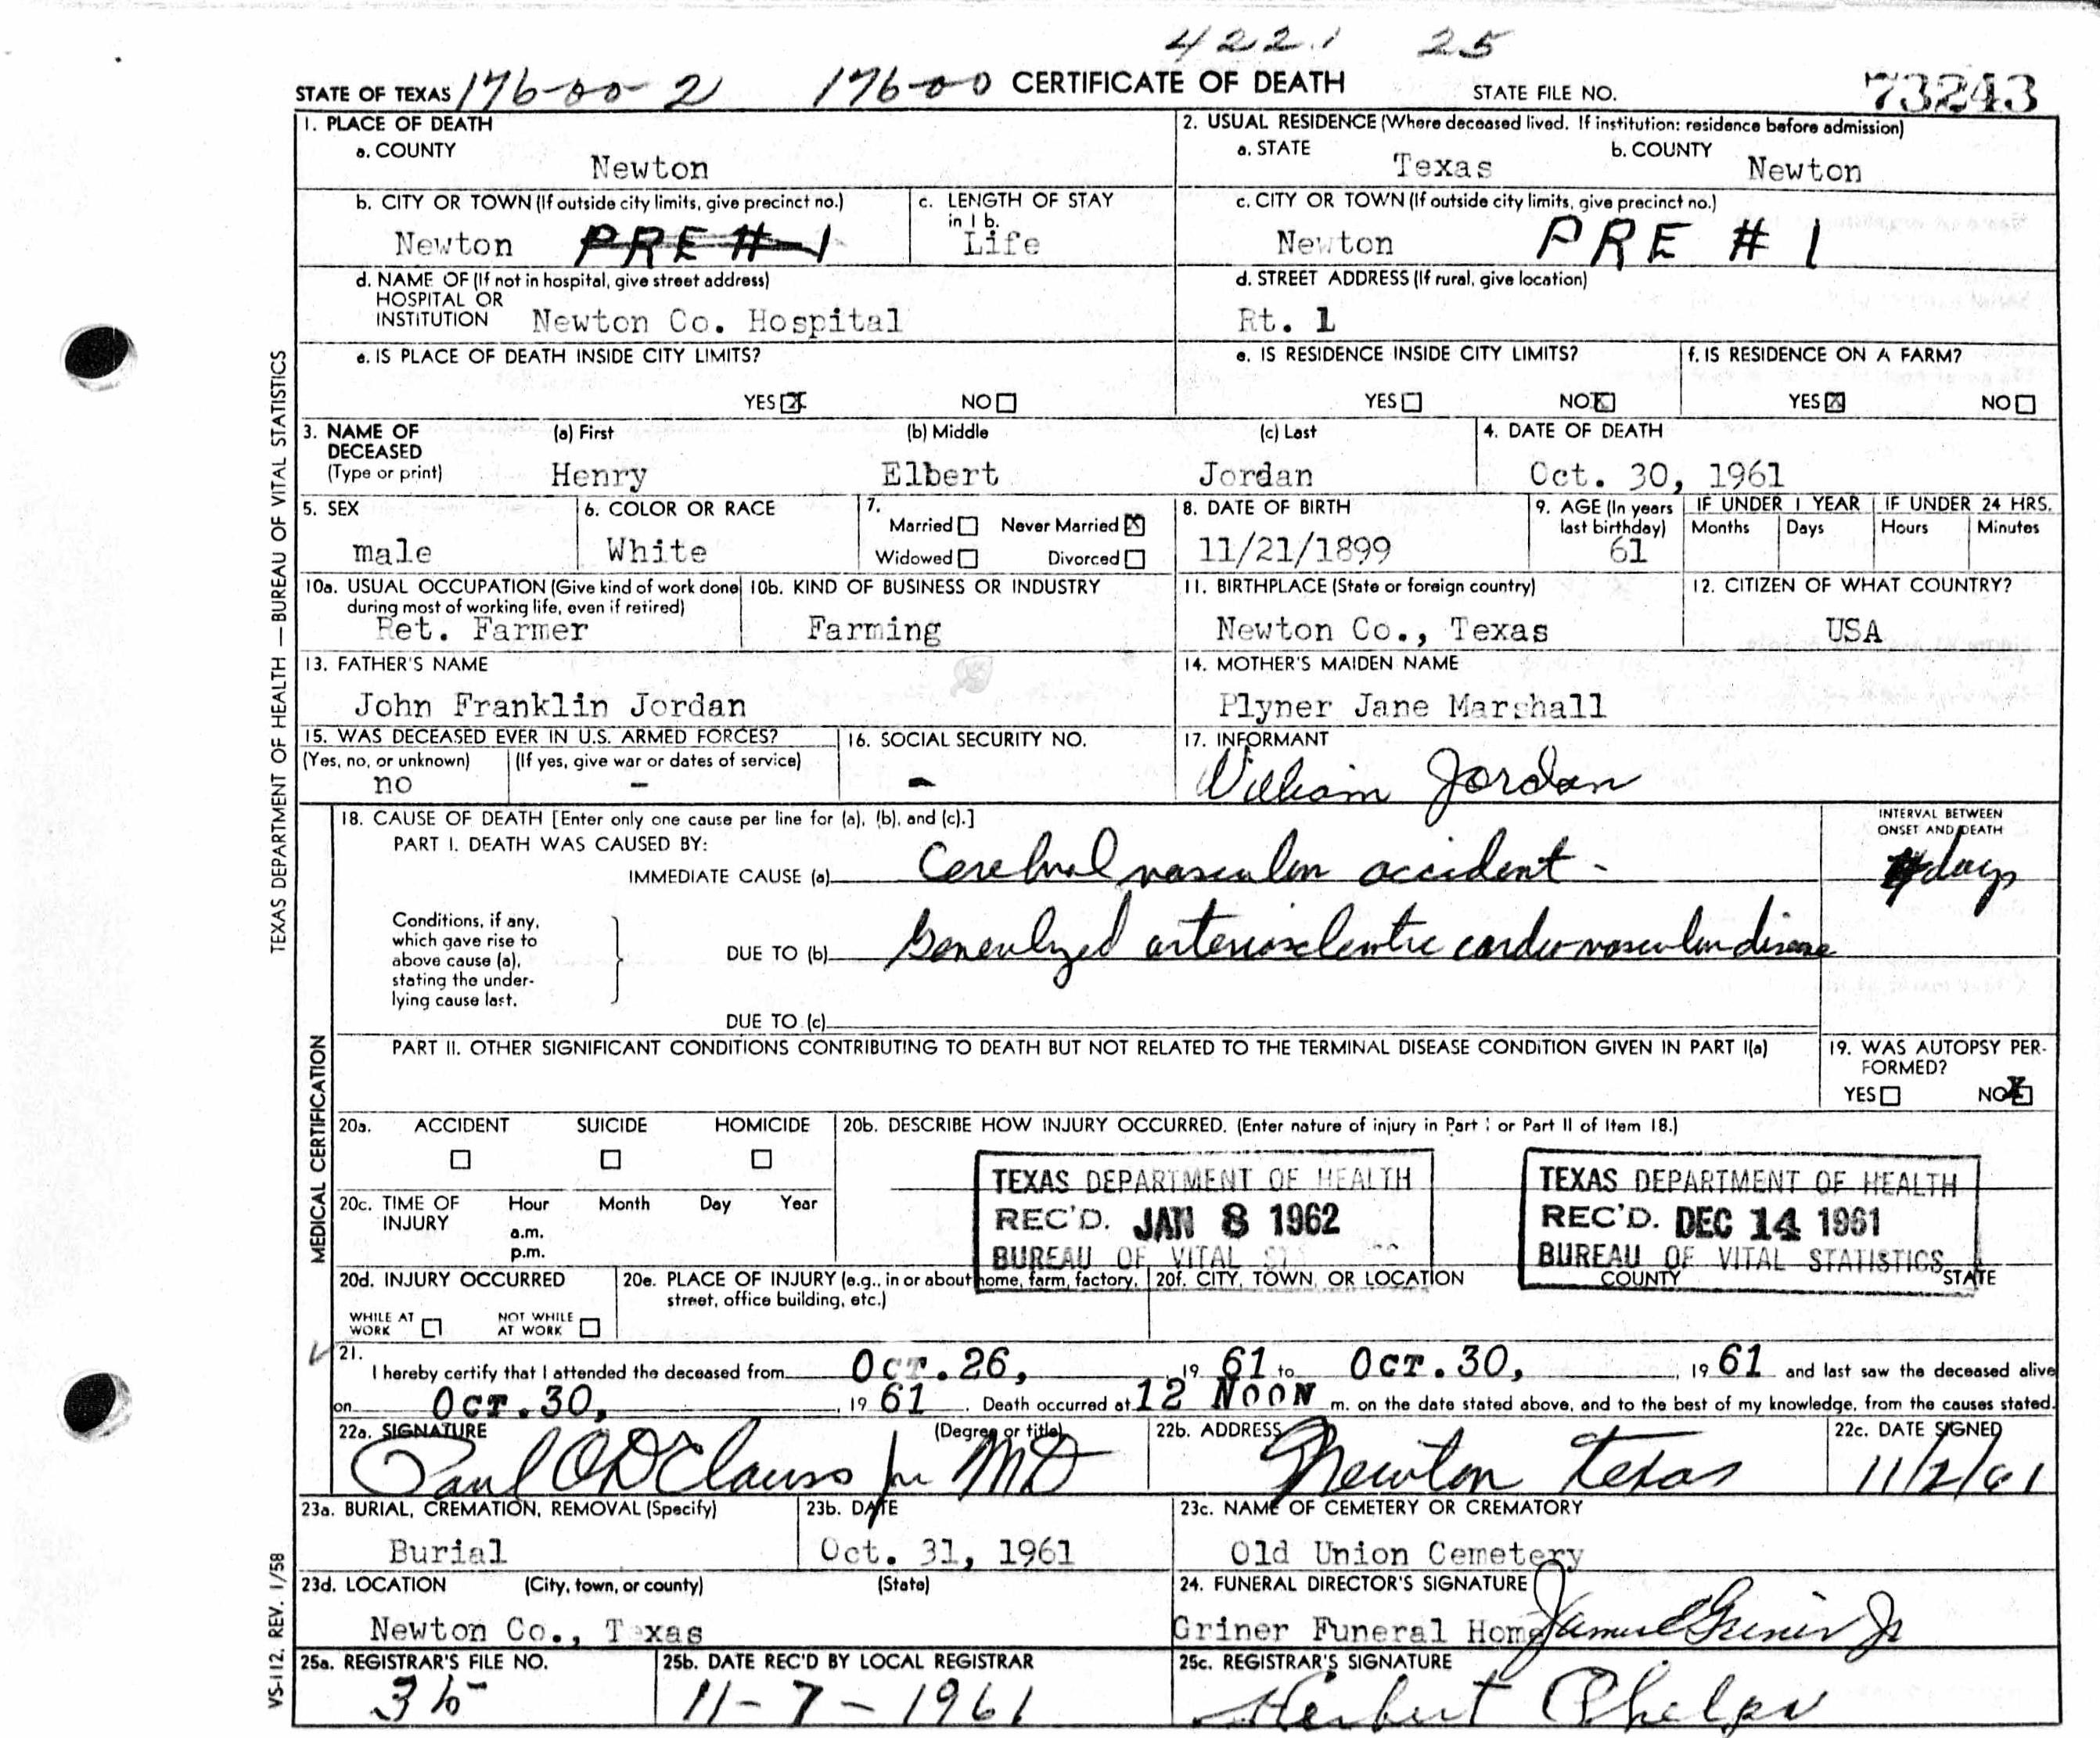 422.1 25
STATE OF TEXAS 176-00-2 176-00 CERTIFICATE OF DEATH STATE FILE NO. 73243
1. PLACE OF DEATH
a. COUNTY Newton
2. USUAL RESIDENCE (Where deceased lived. If institution: residence before admission)
a. STATE Texas b. COUNTY Newton
b. CITY OR TOWN (If outside city limits, give precinct no.)
Newton PRE # 1
c. LENGTH OF STAY in 1 b.
Life
c. CITY OR TOWN (If outside city limits, give precinct no.)
Newton PRE # 1
d. NAME OF (If not in hospital, give street address)
HOSPITAL OR
INSTITUTION Newton Co. Hospital
d. STREET ADDRESS (If rural, give location)
Rt. 1
e. IS PLACE OF DEATH INSIDE CITY LIMITS?
YES X NO
e. IS RESIDENCE INSIDE CITY LIMITS?
YES NO X
f. IS RESIDENCE ON A FARM?
YES X NO
3. NAME OF DECEASED (Type or print)
(a) First (b) Middle (c) Last
Henry Elbert Jordan
4. DATE OF DEATH
Oct. 30, 1961
5. SEX
male
6. COLOR OR RACE
White
7.
Married Never Married X
Widowed Divorced
8. DATE OF BIRTH
11/21/1899
9. AGE (In years last birthday)
61
IF UNDER 1 YEAR
Months Days
IF UNDER 24 HRS.
Hours Minutes
10a. USUAL OCCUPATION (Give kind of work done
during most of working life, even if retired)
Ret. Farmer
10b. KIND OF BUSINESS OR INDUSTRY
Farming
11. BIRTHPLACE (State or foreign country)
Newton Co., Texas
12. CITIZEN OF WHAT COUNTRY?
USA
13. FATHER'S NAME
John Franklin Jordan
14. MOTHER'S MAIDEN NAME
Plyner Jane Marshall
15. WAS DECEASED EVER IN U.S. ARMED FORCES?
(Yes, no, or unknown) (If yes, give war or dates of service)
no -
16. SOCIAL SECURITY NO.
-
17. INFORMANT
William Jordan
18. CAUSE OF DEATH [Enter only one cause per line for (a), (b), and (c).]
INTERVAL BETWEEN
ONSET AND DEATH
PART I. DEATH WAS CAUSED BY:
IMMEDIATE CAUSE (a) Cerebral vascular accident - days
Conditions, if any,
which gave rise to
above cause (a),
stating the under-
lying cause last.
DUE TO (b) Generalyzed arteriosclerotic cardio-vascular disease
DUE TO (c)
PART II. OTHER SIGNIFICANT CONDITIONS CONTRIBUTING TO DEATH BUT NOT RELATED TO THE TERMINAL DISEASE CONDITION GIVEN IN PART I(a)
19. WAS AUTOPSY PER-
FORMED?
YES NO X
20a. ACCIDENT SUICIDE HOMICIDE
20b. DESCRIBE HOW INJURY OCCURRED. (Enter nature of injury in Part I or Part II of Item 18.)
TEXAS DEPARTMENT OF HEALTH
REC'D. JAN 8 1962
BUREAU OF VITAL
TEXAS DEPARTMENT OF HEALTH
REC'D. DEC 14 1961
BUREAU OF VITAL STATISTICS
20c. TIME OF INJURY
Hour Month Day Year
a.m.
p.m.
20d. INJURY OCCURRED
WHILE AT WORK NOT WHILE AT WORK
20e. PLACE OF INJURY (e.g., in or about home, farm, factory,
street, office building, etc.)
20f. CITY, TOWN, OR LOCATION COUNTY STATE
21.
I hereby certify that I attended the deceased from Oct. 26, 19 61 to Oct. 30, 19 61 and last saw the deceased alive
on Oct. 30, 19 61. Death occurred at 12 NOON m. on the date stated above, and to the best of my knowledge, from the causes stated.
22a. SIGNATURE (Degree or title)
Paul O D'Clauss Jr MD
22b. ADDRESS
Newton Texas
22c. DATE SIGNED
11/2/61
23a. BURIAL, CREMATION, REMOVAL (Specify)
Burial
23b. DATE
Oct. 31, 1961
23c. NAME OF CEMETERY OR CREMATORY
Old Union Cemetery
23d. LOCATION (City, town, or county) (State)
Newton Co., Texas
24. FUNERAL DIRECTOR'S SIGNATURE
Griner Funeral Home Griner Jr
25a. REGISTRAR'S FILE NO.
35
25b. DATE REC'D BY LOCAL REGISTRAR
11-7-1961
25c. REGISTRAR'S SIGNATURE
Herbert Phelps
TEXAS DEPARTMENT OF HEALTH — BUREAU OF VITAL STATISTICS
MEDICAL CERTIFICATION
VS-112, REV. 1/58